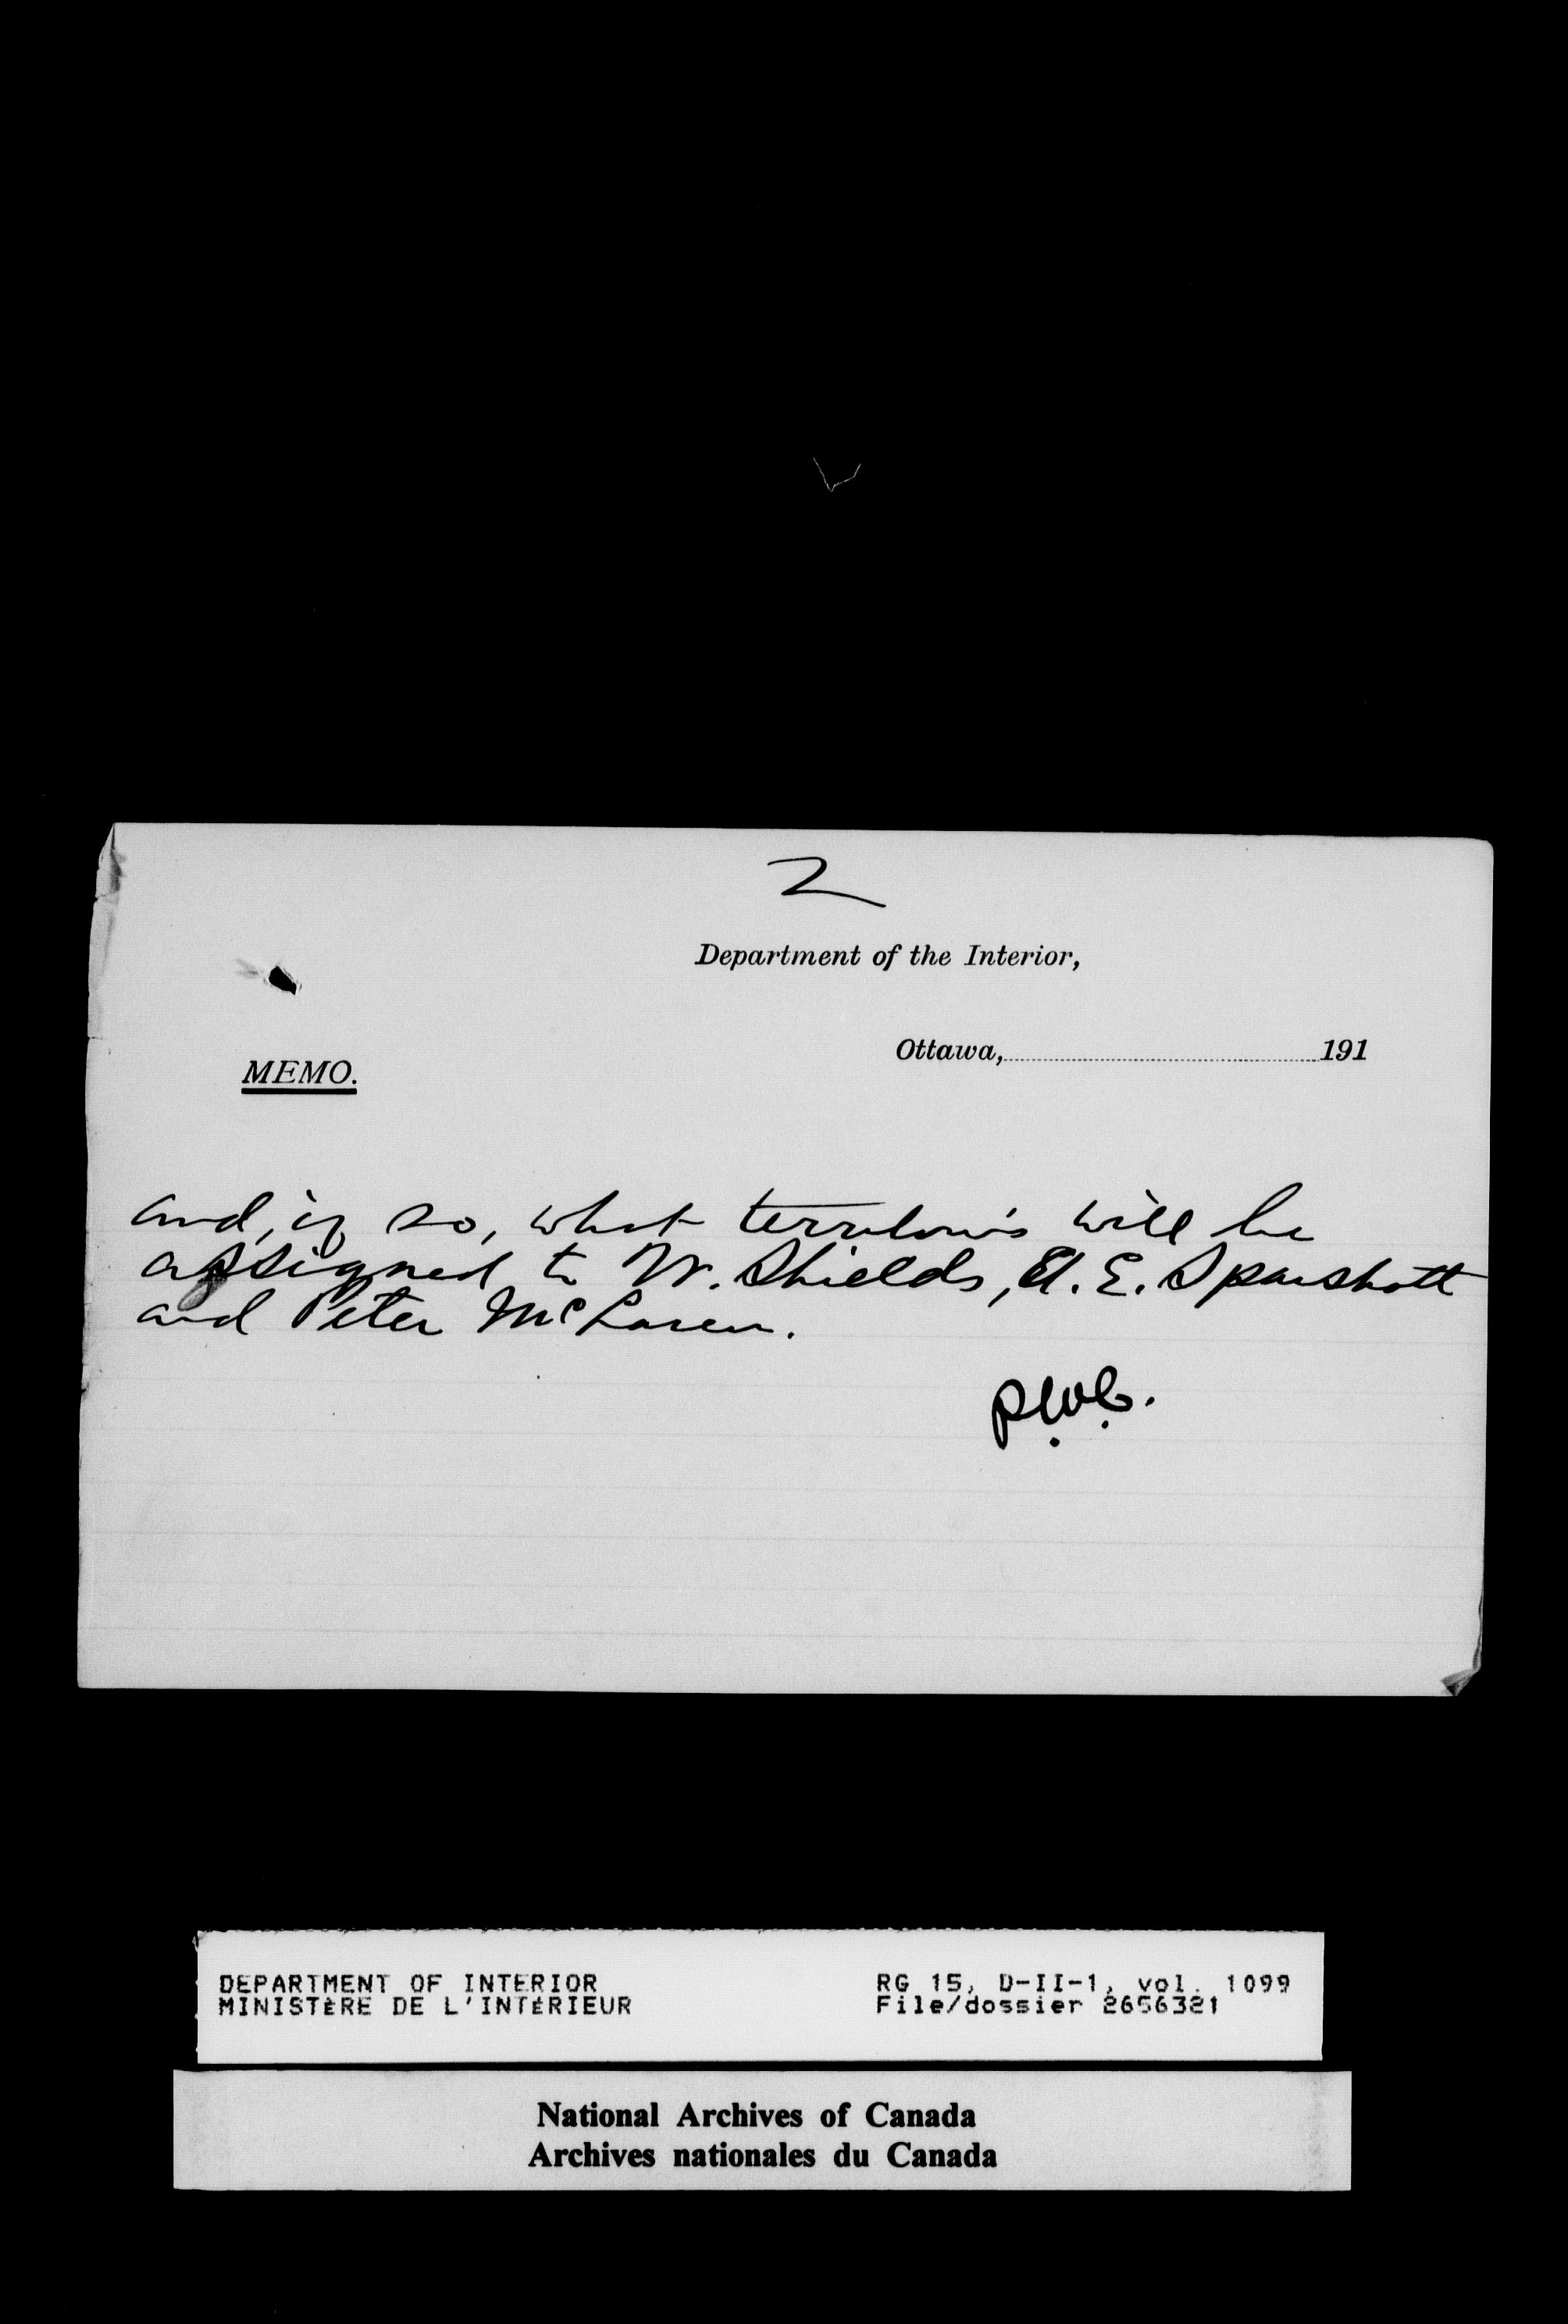 2
Department of the Interior,
Ottawa, 191
MEMO.
and, if so, what territories will be
assigned to W. Shields, E. Sparshott
and Peter McLaren.
DEPARTMENT OF INTERIOR
MINISTÈRE DE L'INTÉRIEUR
RG 15, D-II-1, vol. 1099
File/dossier 2656321
National Archives of Canada
Archives nationales du Canada